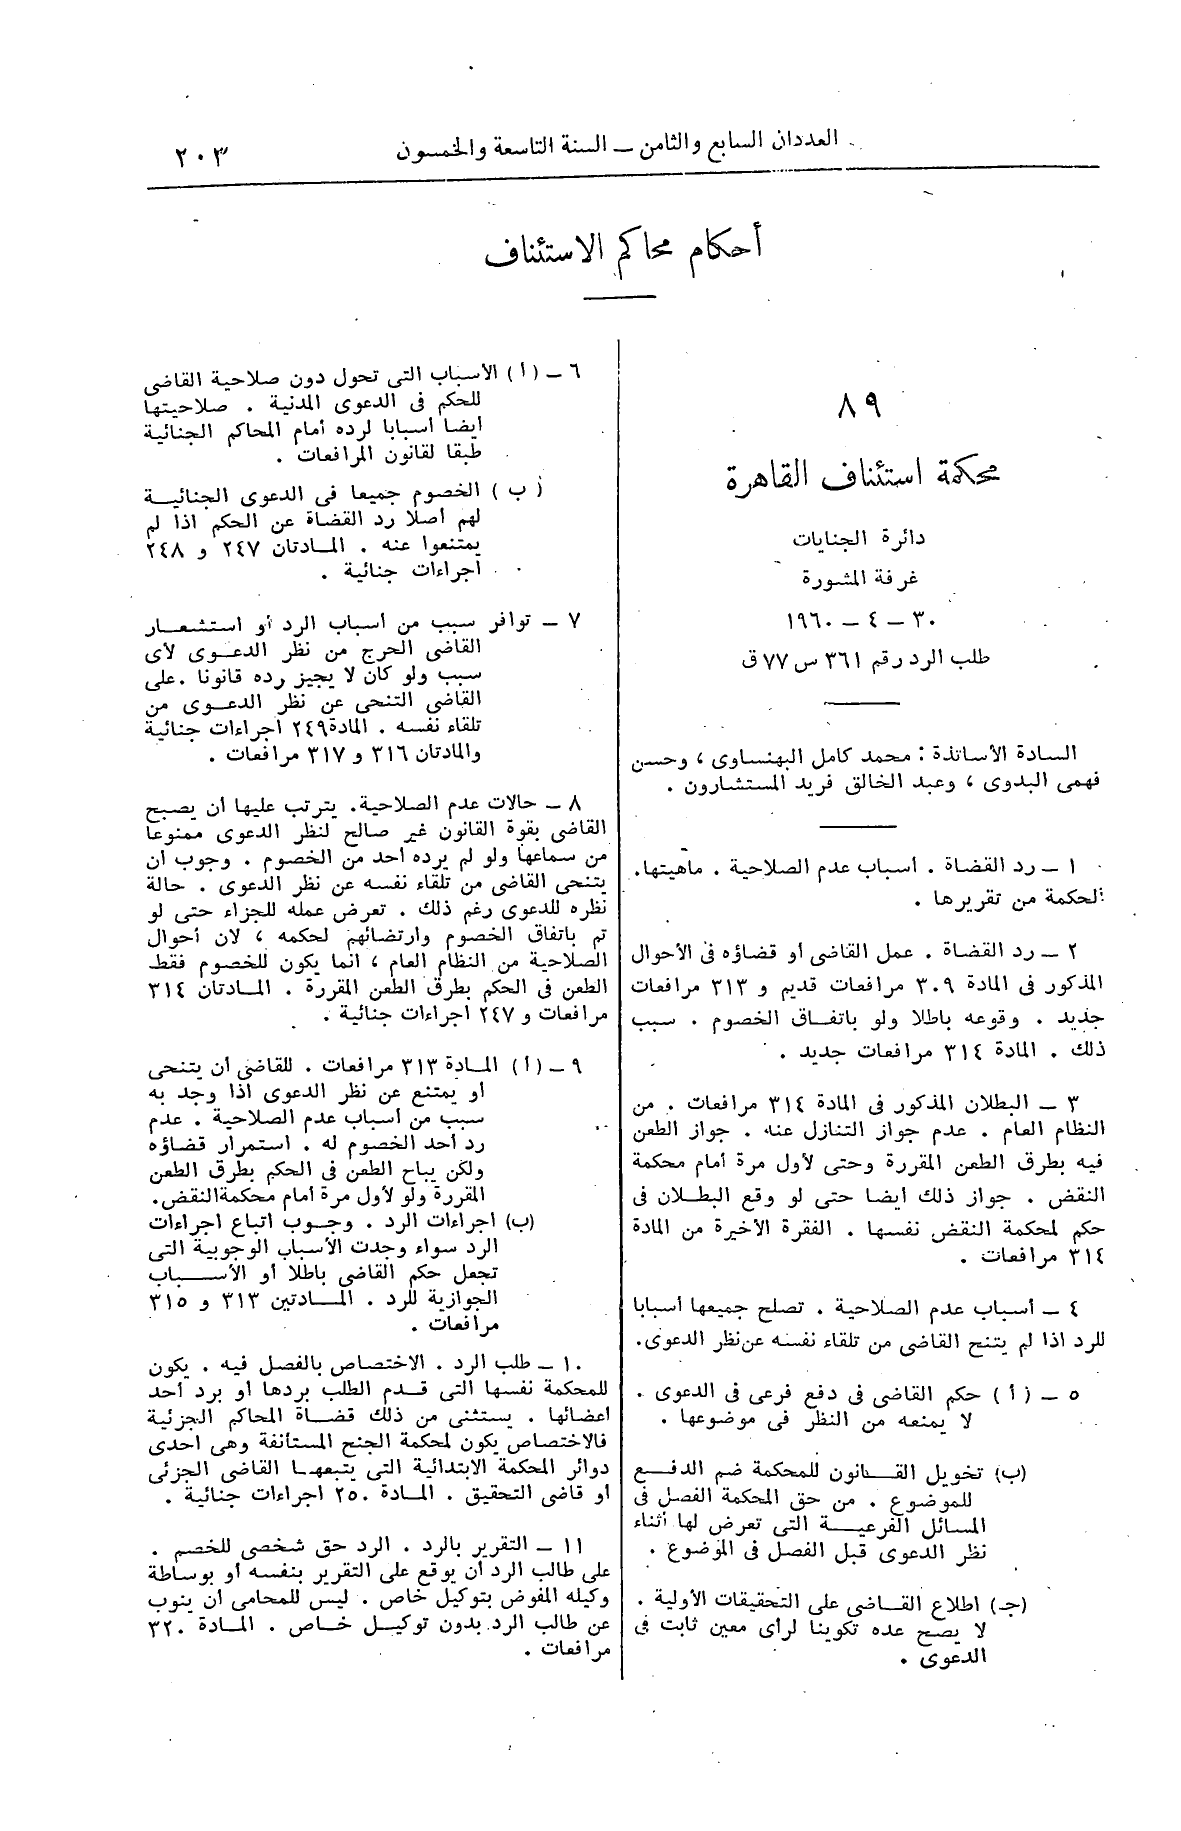 العددان السابع والثامن — السنة التاسعة والخمسون
٢٠٣
أحكام محاكم الاستئناف
٨٩
محكمة استئناف القاهرة
دائرة الجنايات
غرفة المشورة
٣٠ – ٤ – ١٩٦٠
طلب الرد رقم ٣٦١ س ٧٧ ق
السادة الأساتذة : محمد كامل البهنساوى ، وحسن
فهمى البدوى ، وعبد الخالق فريد المستشارون .
١ — رد القضاة . أسباب عدم الصلاحية . ماهيتها.
الحكمة من تقريرها .
٢ — رد القضاة . عمل القاضى أو قضاؤه فى الأحوال
المذكور فى المادة ٣٠٩ مرافعات قديم و ٣١٣ مرافعات
جديد . وقوعه باطلا ولو باتفاق الخصوم . سبب
ذلك . المادة ٣١٤ مرافعات جديد .
٣ — البطلان المذكور فى المادة ٣١٤ مرافعات . من
النظام العام . عدم جواز التنازل عنه . جواز الطعن
فيه بطرق الطعن المقررة وحتى لأول مرة أمام محكمة
النقض . جواز ذلك أيضا حتى لو وقع البطلان فى
حكم لمحكمة النقض نفسها . الفقرة الأخيرة من المادة
٣١٤ مرافعات .
٤ — أسباب عدم الصلاحية . تصلح جميعها أسبابا
للرد اذا لم يتنح القاضى من تلقاء نفسه عن نظر الدعوى.
٥ — (أ) حكم القاضى فى دفع فرعى فى الدعوى .
لا يمنعه من النظر فى موضوعها .
(ب) تخويل القانون للمحكمة ضم الدفع
للموضوع . من حق المحكمة الفصل فى
المسائل الفرعية التى تعرض لها أثناء
نظر الدعوى قبل الفصل فى الموضوع .
(ج) اطلاع القاضى على التحقيقات الأولية .
لا يصح عده تكوينا لرأى معين ثابت فى
الدعوى .
٦ — (أ) الأسباب التى تحول دون صلاحية القاضى
للحكم فى الدعوى المدنية . صلاحيتها
أيضا أسبابا لرده أمام المحاكم الجنائية
طبقا لقانون المرافعات .
(ب) الخصوم جميعا فى الدعوى الجنائية
لهم أصلا رد القضاة عن الحكم اذا لم
يمتنعوا عنه . المادتان ٢٤٧ و ٢٤٨
اجراءات جنائية .
٧ — توافر سبب من أسباب الرد أو استشعار
القاضى الحرج من نظر الدعوى لأى
سبب ولو كان لا يجيز رده قانونا . على
القاضى التنحى عن نظر الدعوى من
تلقاء نفسه . المادة ٢٤٩ اجراءات جنائية
والمادتان ٣١٦ و ٣١٧ مرافعات .
٨ — حالات عدم الصلاحية. يترتب عليها أن يصبح
القاضى بقوة القانون غير صالح لنظر الدعوى ممنوعا
من سماعها ولو لم يرده أحد من الخصوم . وجوب أن
يتنحى القاضى من تلقاء نفسه عن نظر الدعوى . حالة
نظره للدعوى رغم ذلك . تعرض عمله للجزاء حتى لو
تم باتفاق الخصوم وارتضائهم لحكمه ، لان أحوال
الصلاحية من النظام العام ، انما يكون للخصوم فقط
الطعن فى الحكم بطرق الطعن المقررة . المادتان ٣١٤
مرافعات و ٢٤٧ اجراءات جنائية .
٩ — (أ) المادة ٣١٣ مرافعات . للقاضى أن يتنحى
أو يمتنع عن نظر الدعوى اذا وجد به
سبب من أسباب عدم الصلاحية . عدم
رد أحد الخصوم له . استمرار قضاؤه
ولكن يباح الطعن فى الحكم بطرق الطعن
المقررة ولو لأول مرة أمام محكمة النقض.
(ب) اجراءات الرد . وجوب اتباع اجراءات
الرد سواء وجدت الأسباب الوجوبية التى
تجعل حكم القاضى باطلا أو الأسباب
الجوازية للرد . المادتين ٣١٣ و ٣١٥
مرافعات .
١٠ — طلب الرد . الاختصاص بالفصل فيه . يكون
للمحكمة نفسها التى قدم الطلب بردها أو برد أحد
أعضائها . يستثنى من ذلك قضاة المحاكم الجزئية
فالاختصاص يكون لمحكمة الجنح المستأنفة وهى احدى
دوائر المحكمة الابتدائية التى يتبعها القاضى الجزئى
أو قاضى التحقيق . المادة ٢٥٠ اجراءات جنائية .
١١ — التقرير بالرد . الرد حق شخصى للخصم .
على طالب الرد أن يوقع على التقرير بنفسه أو بوساطة
وكيله المفوض بتوكيل خاص . ليس للمحامى أن ينوب
عن طالب الرد بدون توكيل خاص . المادة ٣٢٠
مرافعات .